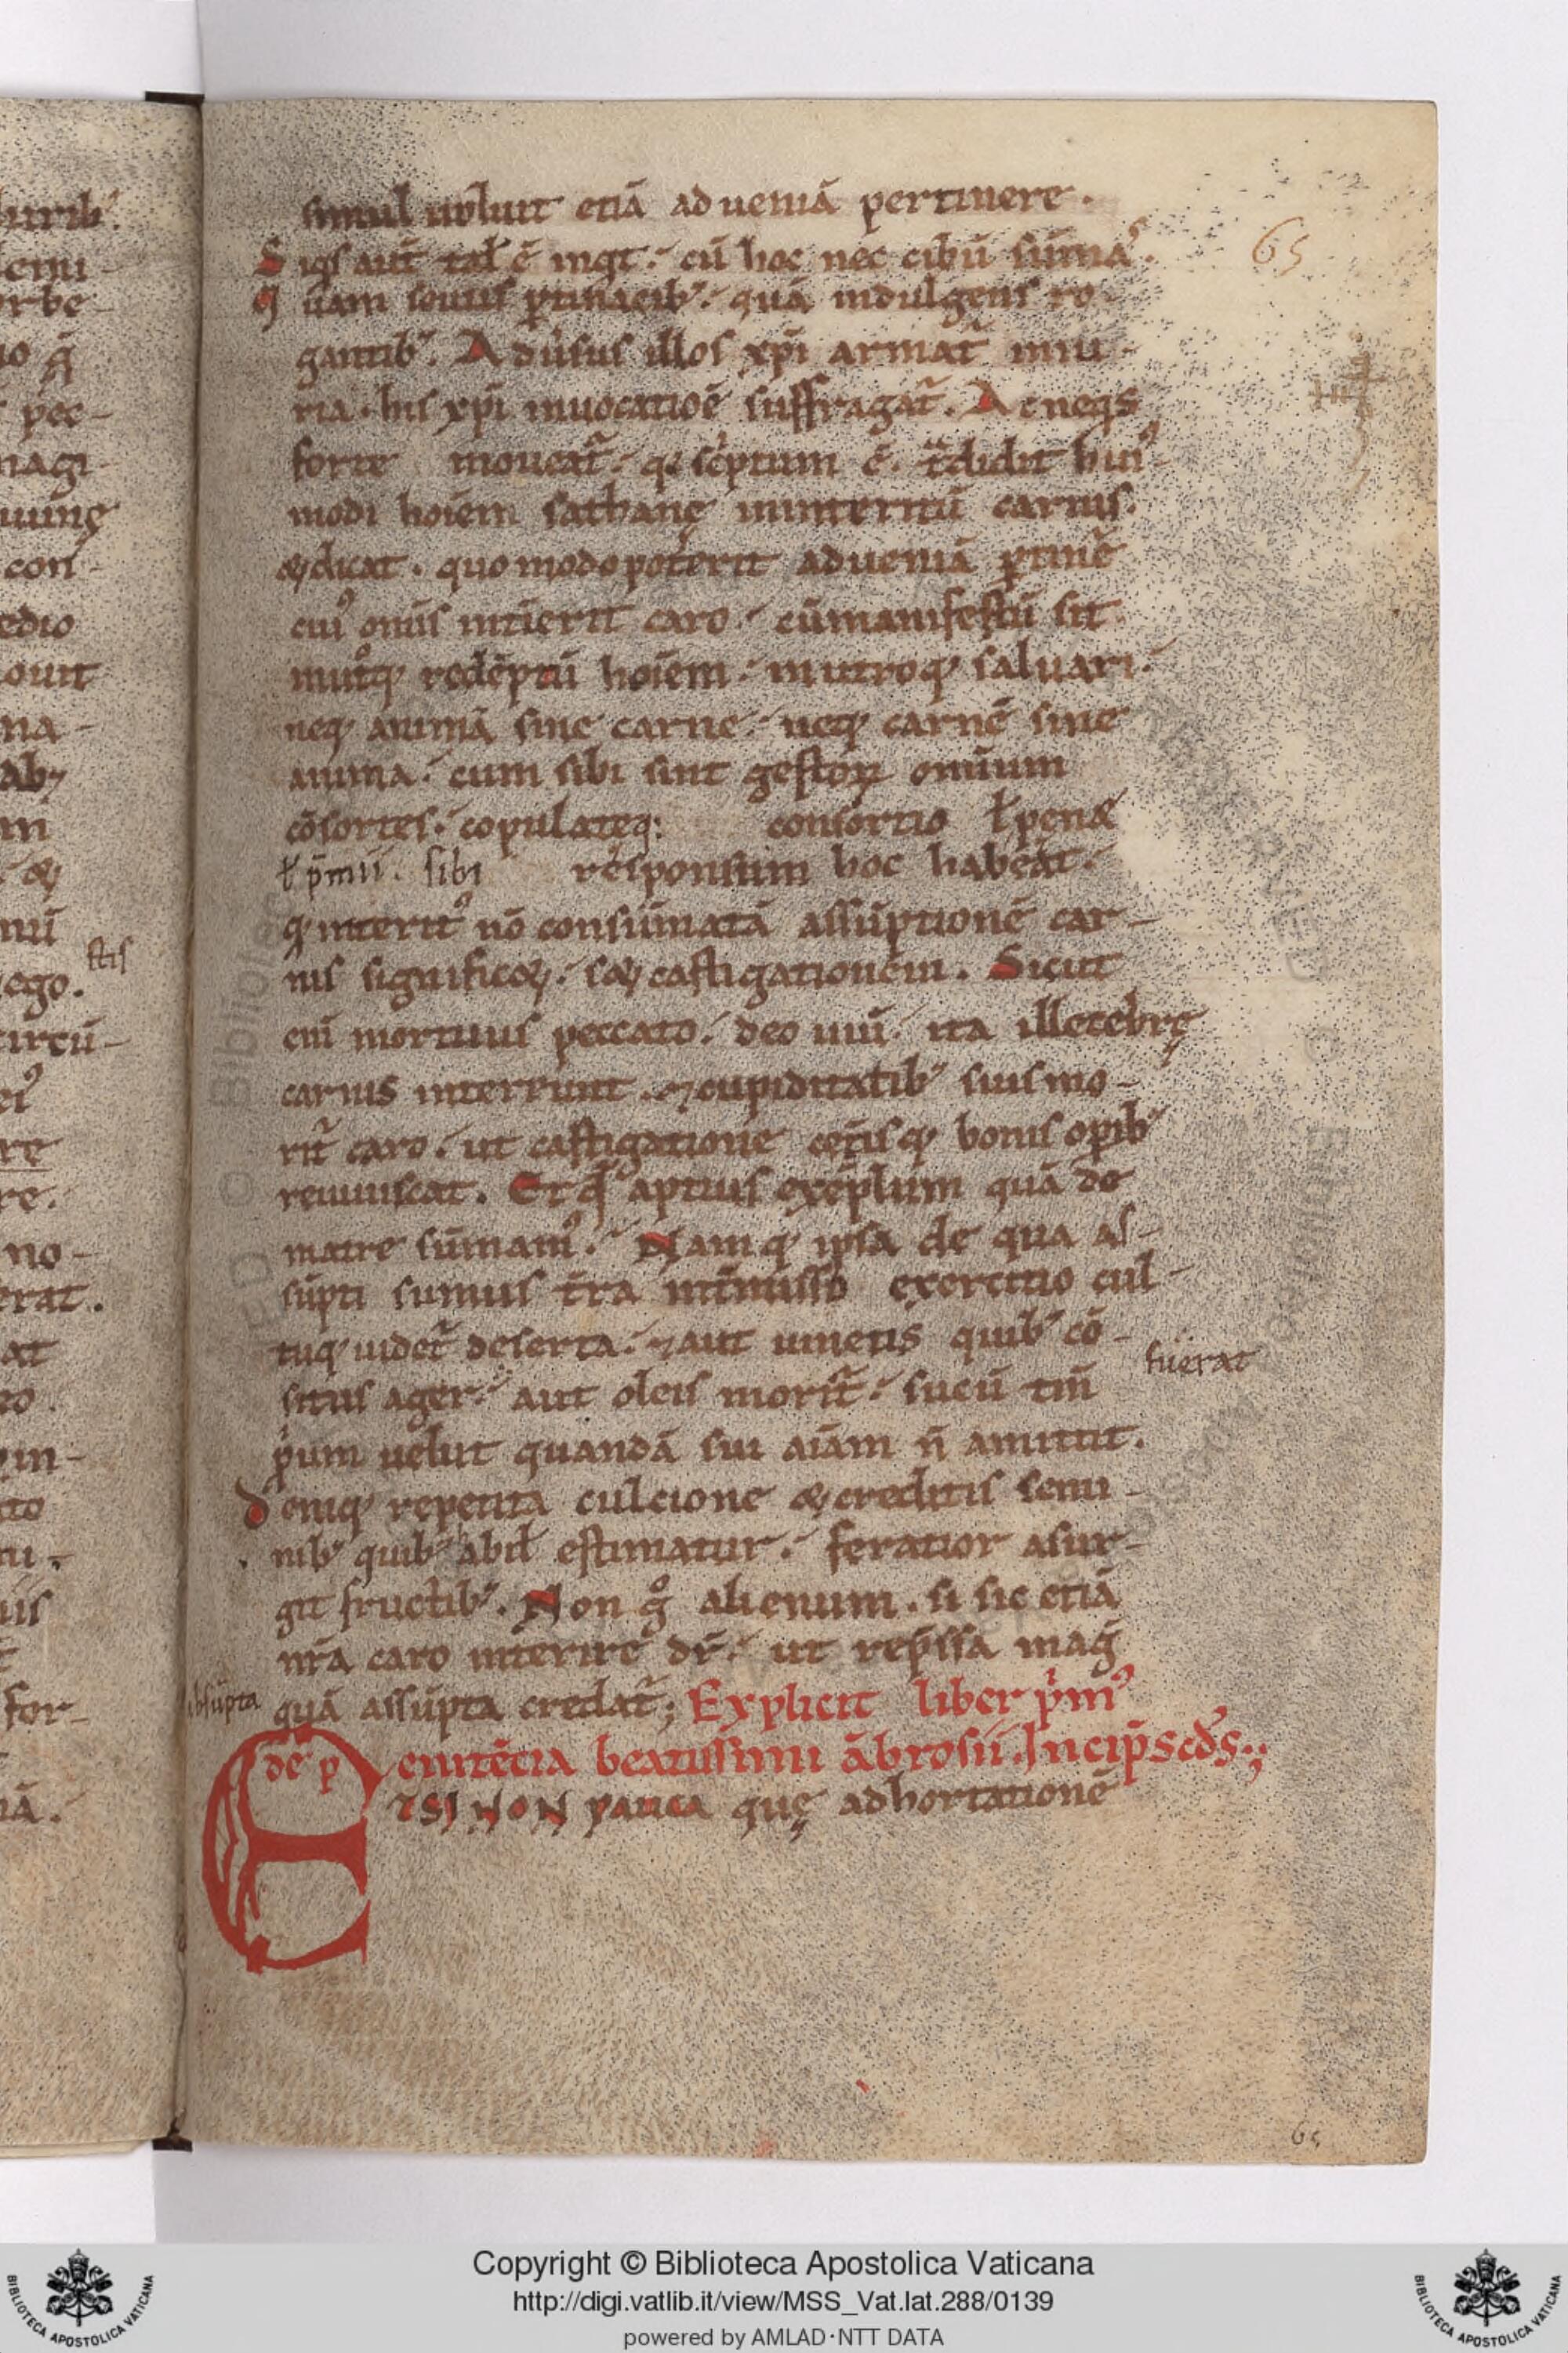 simul uoluit etiā ad ueniā pertinere.
Siqs aut̄ tal̄ ē inqt. cū hoc nec cibū sūmaꝰ.
Quam seuus ꝑtinacibꝰ. quā indulgens ro-
gantibꝰ. Aduͥsus illos xp̄i armat᷑ iniu-
ria. his xp̄i inuocatioē suffragat᷑. Ac neqs
forte moueat᷑. qꝫ scͥptum ē. tͣdidit huiꝰ-
modi hoiēm sathanę ininteritū carnis.
& dicat. quomodo poterit ad ueniā ꝑtinē
cuiꝰ om̄is intierit caro. cū manifestū sit
inutͦqꝫ redēptū hoiēm. in utroqꝫ saluari.
neqꝫ animā sine carne. neqꝫ carnē sine
anima. cum sibi sint gestoꝝ omūium
cōsortes. copulateqꝫ: consortio ł penę
ł p̄mii. sibi responsum hoc habeat.
qꝫ interitꝰ nō consūmatā assūptionē car-
nis significꝫ. sꝫ castigationem. Sicut
enī mortuus peccato. deo uiuͥ. ita illecebrę
carnis intereunt. ⁊ cupiditatibꝰ suis mo-
rit᷑ caro. ut castigatione cet̄isqꝫ bonis opibꝰ
reuiuiscat. Et qͥd aptius exēplum quā de
matre sūmamꝰ. Namqꝫ ipsa de qua as-
sūpti sumus t̄ra int̄misso exercitio cul-
tuqꝫ uidet᷑ deserta. ⁊ aut uinetis quibꝰ cō-
fuerat
situs ager. aut oleis morit᷑. sucū tm̄
pͥum uelut quandā sui aīam n̄ amittit.
Deniqꝫ repetita culcione & creditis semi-
nibꝰ quibꝰ abil̄ estimatur. feratior asur-
git fructibꝰ. Non gͦ alienum. si sic etiā
nr̄a caro interire dr̄. ut rep̄ssa maḡ
absūpta
quā assūpta credat᷑; Explicit liber pͥmꝰ
de p enitētia beatissimi ābrosii. Incip̄ scd̄s.
ETSI NON pauca quę adhortationē
65
65
Copyright © Biblioteca Apostolica Vaticana
http://digi.vatlib.it/view/MSS_Vat.lat.288/0139
powered by AMLAD·NTT DATA
BIBLIOTECA APOSTOLICA VATICANA
BIBLIOTECA APOSTOLICA VATICANA